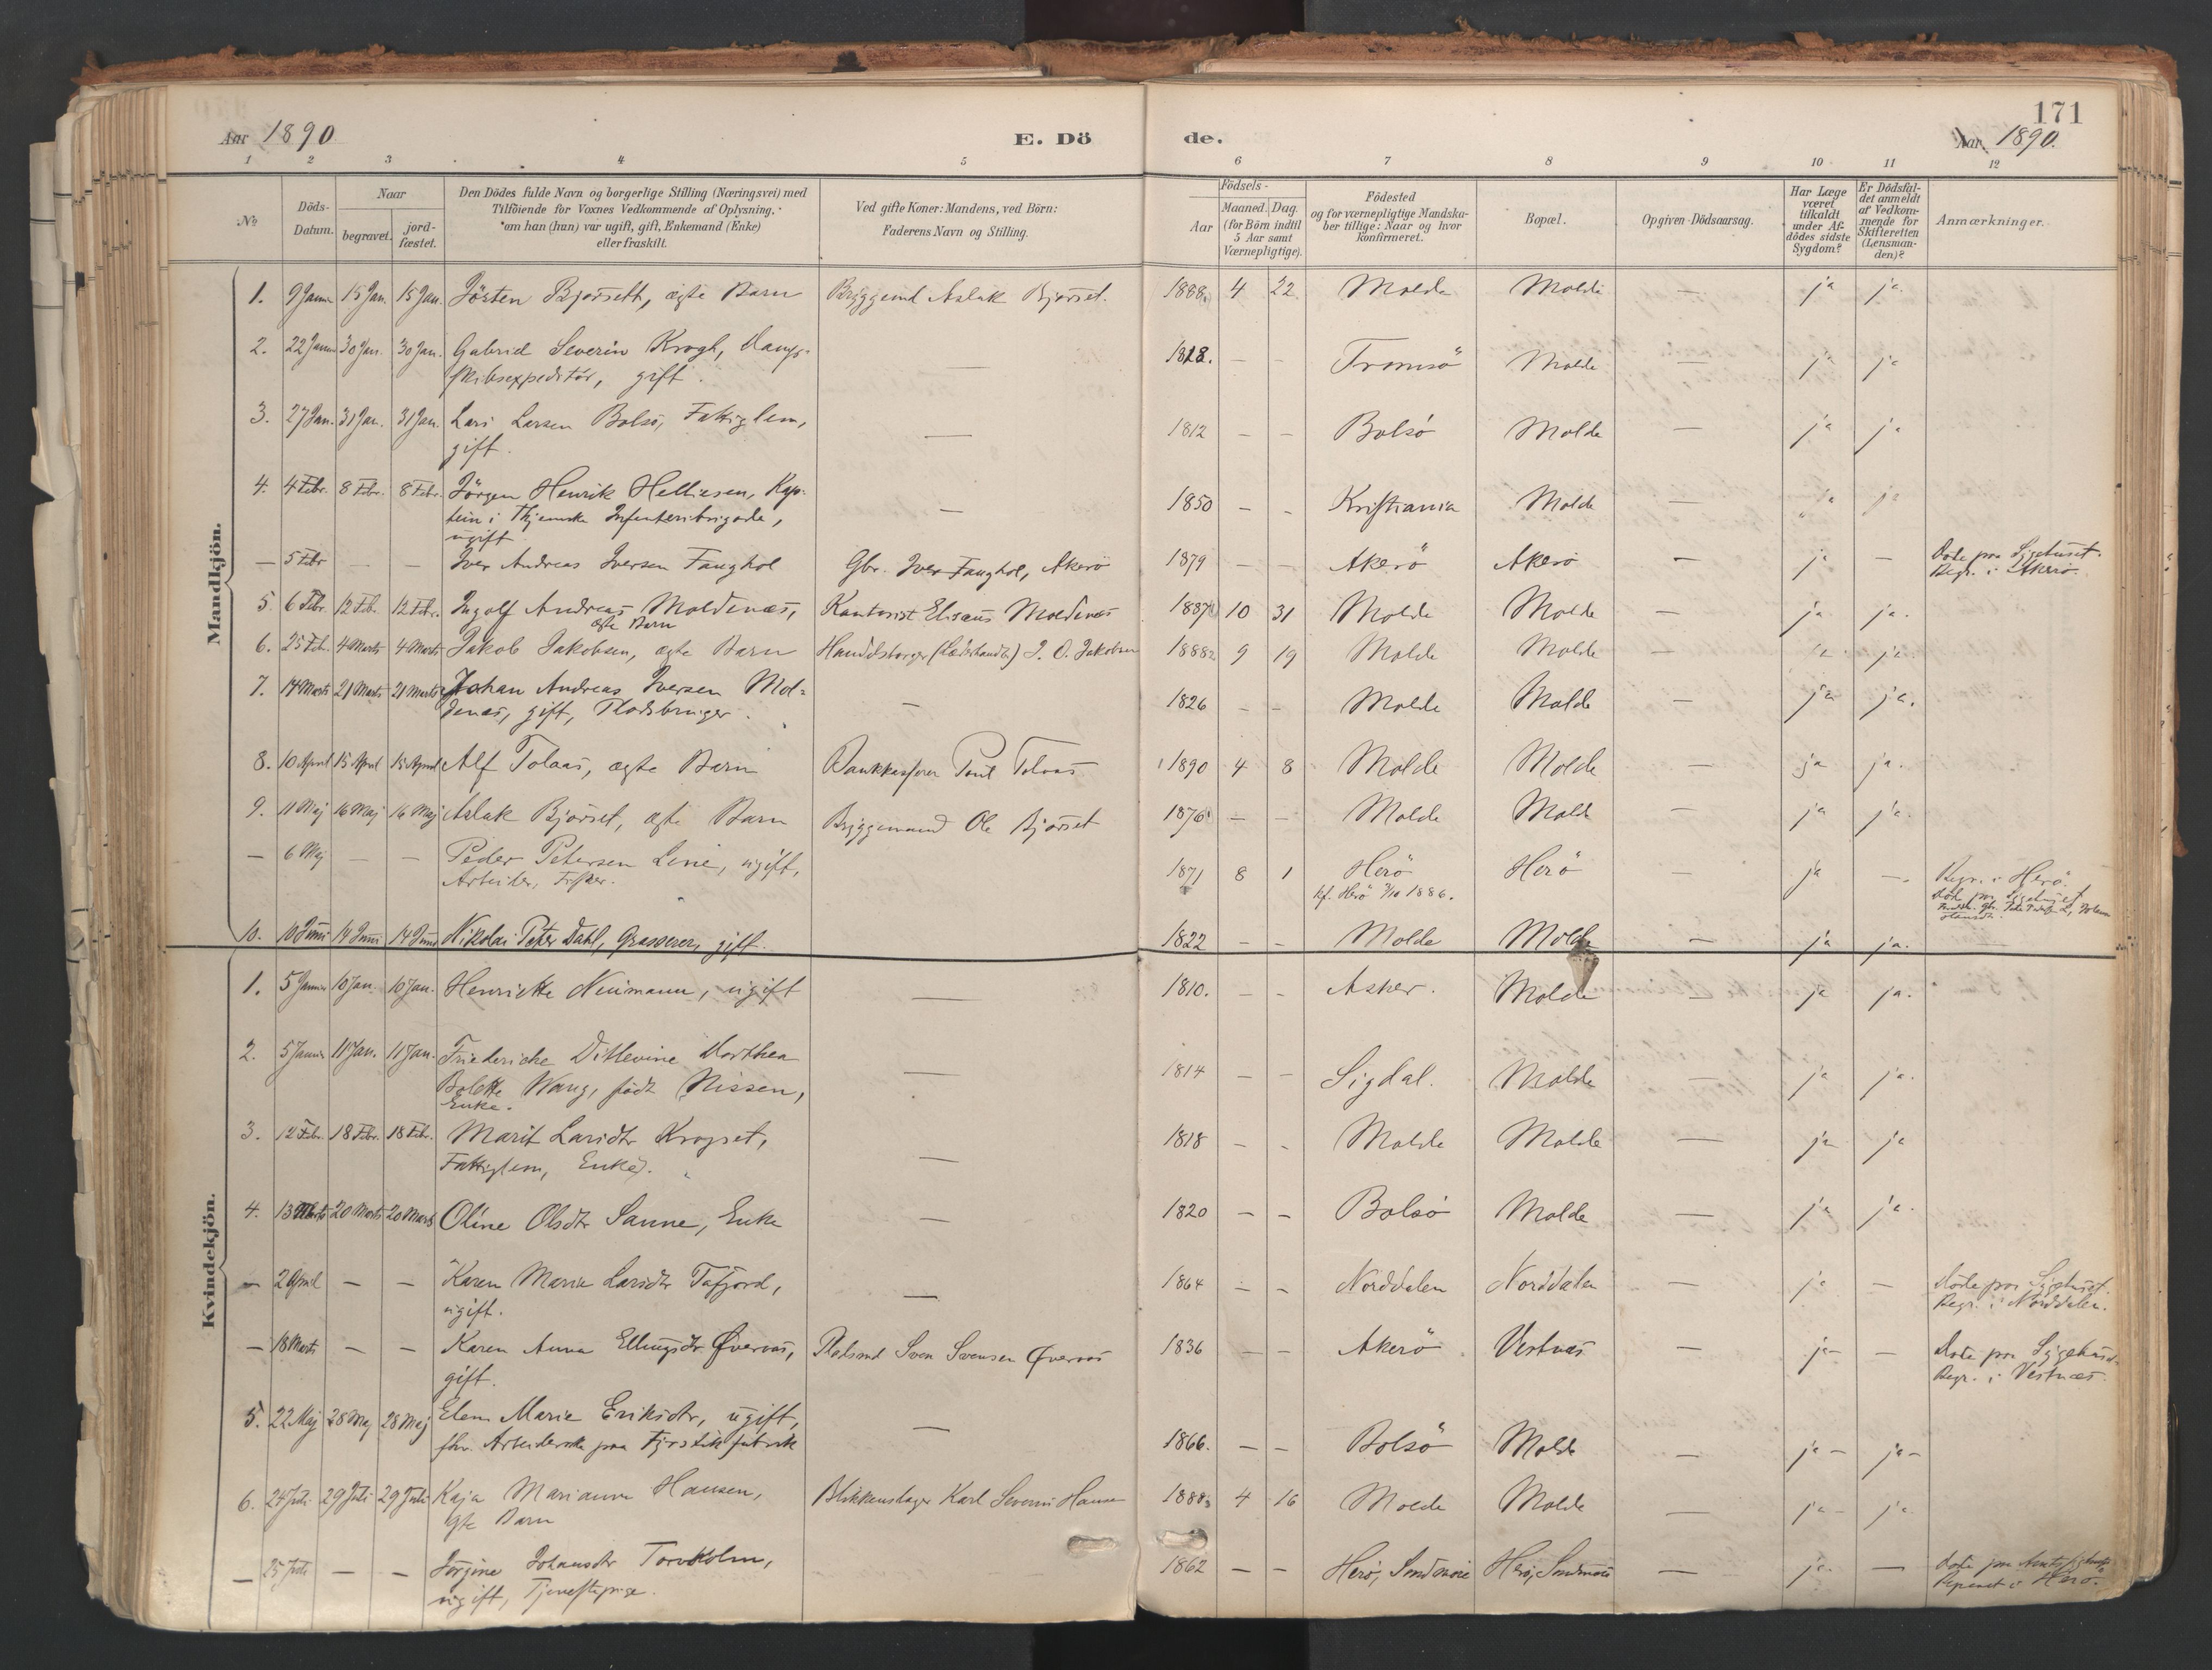 171
Aar 1890
E. Dö
de.
Aar 1890.
1 2 3 4 5 6 7 8 9 10 11 12
No
Döds-
Datum.
Naar
begravet.
jord-
fæstet.
Den Dödes fulde Navn og borgerlige Stilling (Næringsvei) med
Tilföiende for Voxnes Vedkommende af Oplysning,
om han (hun) var ugift, gift, Enkemand (Enke)
eller fraskilt.
Ved gifte Koner: Mandens, ved Börn:
Faderens Navn og Stilling.
Födsels-
Aar
Maaned. Dag.
(for Börn indtil
5 Aar samt
Værnepligtige).
Födested
og for værnepligtige Mandska-
ber tillige: Naar og hvor
konfirmeret.
Bopæl.
Opgiven Dödsaarsag.
Har Læge
været
tilkaldt
under Af-
dödes sidste
Sygdom?
Er Dödsfal-
det anmeldt
af Vedkom-
mende for
Skifteretten
(Lensman-
den)?
Anmærkninger.
Mandkjön.
1. 9 Januar 15 Jan. 15 Jan. Jörsten Bjørsett, ægte Barn Bryggemd Aslak Bjørset. 1888 4 22 Molde Molde — ja ja
2. 22 Januar 30 Jan. 30 Jan. Gabriel Severin Krogh, Damp-
skibsexpeditör, gift. — 1828. — — Tromsö Molde — ja ja
3. 27 Jan. 31 Jan. 31 Jan. Lars Larsen Bolsö, Fattiglem,
gift. — 1812 — — Bolsö Molde — ja ja
4. 4 Febr. 8 Febr. 8 Febr. Jörgen Henrik Helliesen, Kap-
tein i Infanteribrigade,
ugift — 1850 — — Kristiania Molde — ja ja
— 5 Febr — — Iver Andreas Iversen Fanghol Gbr. Iver Fanghol, Akerö 1879 — — Akerö Akerö — ja — Döde paa Sygehuset.
Begr. i Akerö.
5. 6 Febr. 12 Feb. 12 Febr. Ingolf Andreas Moldenæs, Kontorist Elisæus Moldenæs 1887 10 31 Molde Molde — ja ja.
ægte Barn
6. 25 Feb. 4 Marts 4 Marts Jakob Jakobsen, ægte Barn Handelsborger (Læderhandl.) J. O. Jakobsen 1888 9 19 Molde Molde — ja ja.
7. 14 Marts 21 Marts 21 Marts Johan Andreas Iversen Mol-
denæs, gift, Pladsbruger. — 1826 — — Molde Molde — ja ja.
8. 10 April 15 April 15 April Alf Tolaas, ægte Barn Bankkasserer Poul Tolaas 1890 4 8 Molde Molde — ja ja.
9. 11 Maj 16 Maj 16 Maj Aslak Bjørset, ægte Barn Bryggemand Ole Bjørset 1876 — — Molde Molde — ja ja.
— 6 Maj — — Peder Petersen Leine, ugift,
Arbeider, Fisker. 1871 8 1 Herö Herö — ja — Begr. i Herö.
kf. Herö 1886.
Död paa Sygehuset
10. 10 Juni 14 Juni 14 Juni Nikolai Peter Dahl, Grosserer, gift. 1822 — — Molde Molde — ja ja.
Kvindekjön.
1. 5 Januar 10 Jan. 10 Jan. Henriette Neumann, ugift — 1810. — — Asker. Molde — ja ja.
2. 5 Januar 11 Jan. 11 Jan. Friedericke Ditlevine Dorthea
Bolette Wang, födt Nissen,
Enke. — 1814 — — Sigdal. Molde — ja ja.
3. 12 Febr. 18 Febr. 18 Febr. Marit Larsdtr Kropset,
Fattiglem, Enke. — 1818 — — Molde Molde — ja ja
4. 13 Marts 20 Marts 20 Marts Oline Olsdtr Sanne, Enke — 1820 — — Bolsö Molde — ja ja.
— 2 April — — Karen Marie Larsdtr Tafjord,
ugift. — 1864 — — Norddalen Norddalen — ja — Döde paa Sygehuset.
Begr. i Norddalen.
— 18 Marts — — Karen Anna Ellingsdtr Øveraas,
gift. Pladsmd Sven Svensen Øveraas 1836 — — Akerö Vestnæs — ja — Döde paa Sygehuset
Begr. i Vestnæs.
5. 22 Maj 28 Maj 28 Maj Elen Marie Eriksdtr, ugift,
fhv. Arbeiderske paa Fyrstikfabrik — 1866. — — Bolsö Molde — ja — ja —
6. 24 Juli 29 Juli 29 Juli Kaja Marianne Hansen,
ægte Barn Blikkenslager Karl Severin Hansen 1888 4 16 Molde Molde — ja — ja
— 25 Juli — — Jörgine Johansdtr Torvholm,
ugift, Tjenestepige. 1862 — — Herö, Söndmöre Herö, Söndmöre — ja. — Döde paa Amtssygehuset
i Herö.